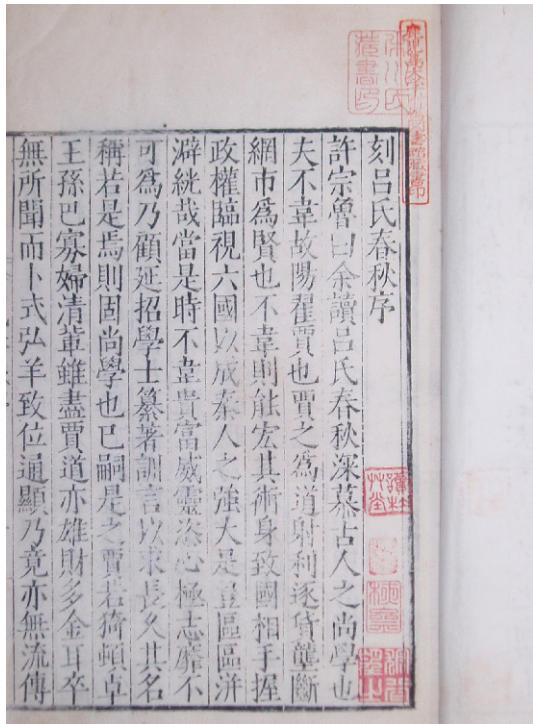 刻呂氏春秋序
許宗魯曰余讀呂氏春秋深慕古人之尚學也
夫不韋故陽翟賈也賈之為道射利逐貨龍斷
網市為賢也不韋則能宏其術身致國相手握
政權臨視六國以成秦人之強大是豈區區洴
澼絖哉當是時不韋貴富威靈恣心極志靡不
可為乃顧延招學士纂著訓言以求長久其名
稱若是焉則固尚學也已嗣是之賈若猗頓卓
王孫巴寡婦清輩雖盡賈道亦雄財多金耳卒
無所聞而卜式弘羊致位通顯乃竟亦無流傳